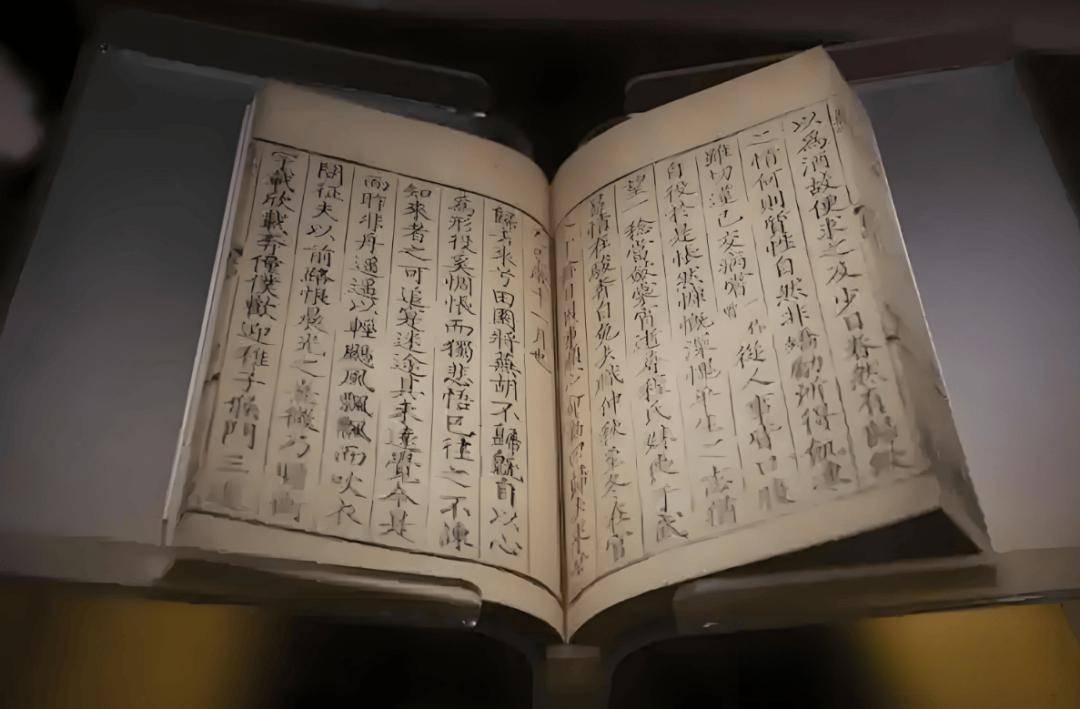 以為酒故便求之及少日眷然有歸
之情何則質性自然非矯勵所得飢凍
雖切違已交病嘗一作從人事皆口腹
自役於是悵然慷慨深愧平生之志猶
望一稔當斂裳宵逝尋程氏妹喪于武
昌情在駿奔自免去職仲秋至冬在官
八十餘日因事順心命篇曰歸去來兮
乙巳歲十一月也
歸去來兮田園將蕪胡不歸既自以心
為形役奚惆悵而獨悲悟已往之不諫
知來者之可追寔迷途其未遠覺今是
而昨非舟遙遙以輕颺風飄飄而吹衣
問征夫以前路恨晨光之熹微乃瞻衡
宇載欣載奔僮僕歡迎稚子候門三逕